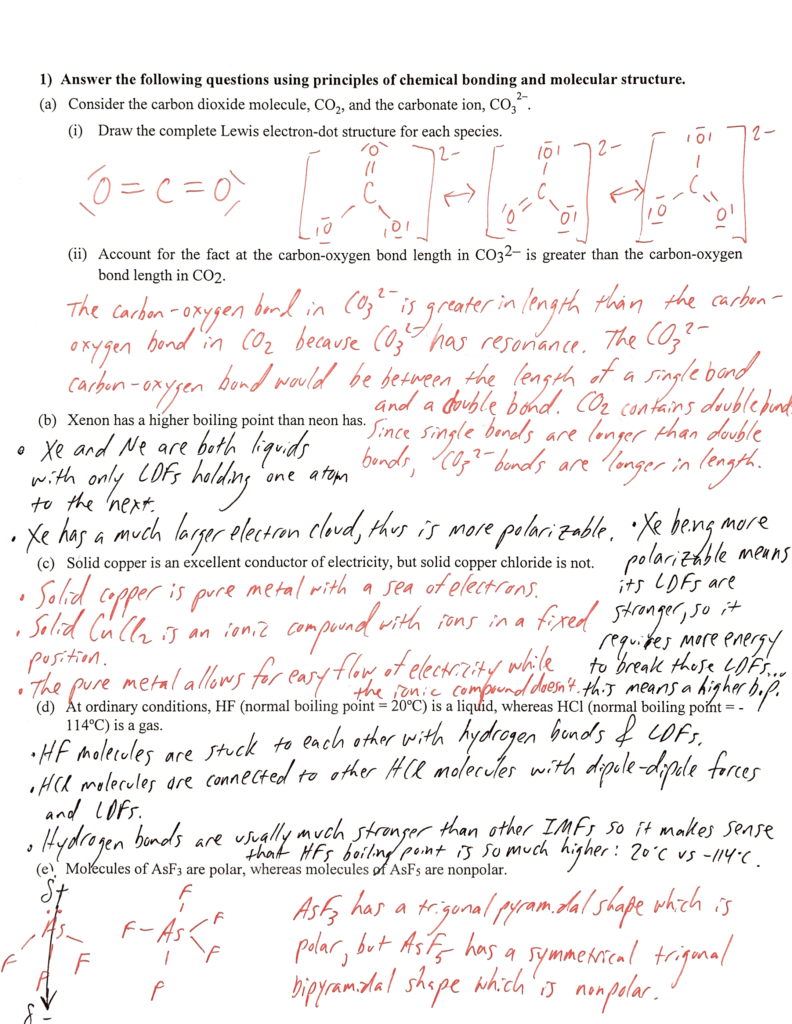 1) Answer the following questions using principles of chemical bonding and molecular structure.
(a) Consider the carbon dioxide molecule, CO₂, and the carbonate ion, CO₃²⁻.
(i) Draw the complete Lewis electron-dot structure for each species.
O = C = O
O C O O
2-
O C O O
2-
O C O O
2-
(ii) Account for the fact at the carbon-oxygen bond length in CO3²⁻ is greater than the carbon-oxygen
bond length in CO2.
The carbon-oxygen bond in CO₃²⁻ is greater in length than the carbon-
oxygen bond in CO₂ because CO₃²⁻ has resonance. The CO₃²⁻
carbon-oxygen bond would be between the length of a single bond
and a double bond. CO₂ contains double bond.
Since single bonds are longer than double
bonds, CO₃²⁻ bonds are longer in length.
(b) Xenon has a higher boiling point than neon has.
• Xe and Ne are both liquids
with only LDFs holding one atom
to the next.
• Xe has a much larger electron cloud, thus is more polarizable.
• Xe being more
polarizable means
its LDFs are
stronger, so it
requires more energy
to break those LDFs...
this means a higher b.p.
(c) Solid copper is an excellent conductor of electricity, but solid copper chloride is not.
• Solid copper is pure metal with a sea of electrons.
• Solid CuCl₂ is an ionic compound with ions in a fixed
position.
• The pure metal allows for easy flow of electricity while
the ionic compound doesn't.
(d) At ordinary conditions, HF (normal boiling point = 20°C) is a liquid, whereas HCl (normal boiling point = -
114°C) is a gas.
• HF molecules are stuck to each other with hydrogen bonds & LDFs.
• HCl molecules are connected to other HCl molecules with dipole-dipole forces
and LDFs.
• Hydrogen bonds are usually much stronger than other IMFs so it makes sense
that HFs boiling point is so much higher: 20°C vs -114°C.
(e) Molecules of AsF3 are polar, whereas molecules of AsF5 are nonpolar.
δ+
As
F F F
δ-
F
F - As F
F
F
AsF₃ has a trigonal pyramidal shape which is
polar, but AsF₅ has a symmetrical trigonal
bipyramidal shape which is nonpolar.